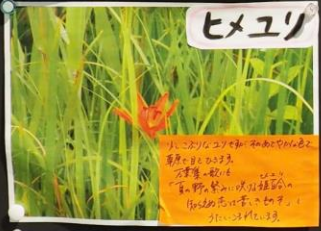 ヒメユリ
少しこぶりなユリですが、そのあざやかな色で
草原で目をひきます。
万葉集の歌にも
「夏の野の繁みに咲ける姫百合の
知らえぬ恋は苦しきものそ」と
うたいこまれています